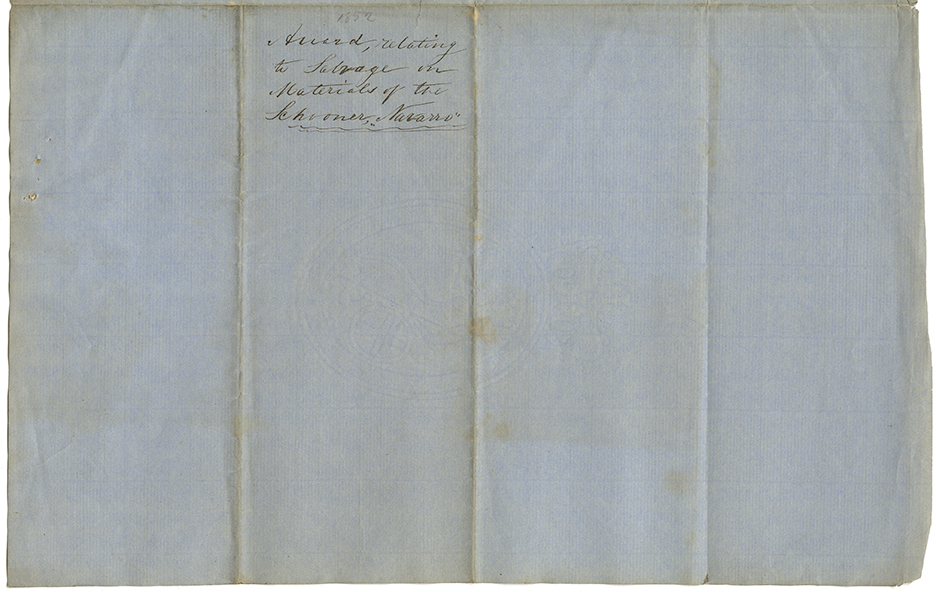 1852
Award, relating
to Salvage on
Materials of the
Schooner, "Navarro"